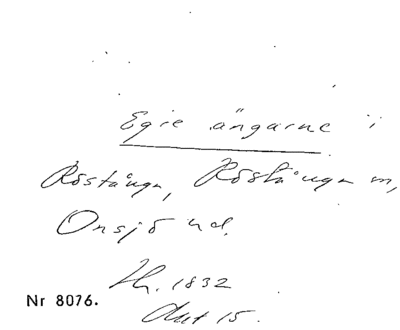 Egie ängarne i
Röstånga, Röstånga sn,
Onsjö hd.
Th. 1832
Akt 15.
Nr 8076.